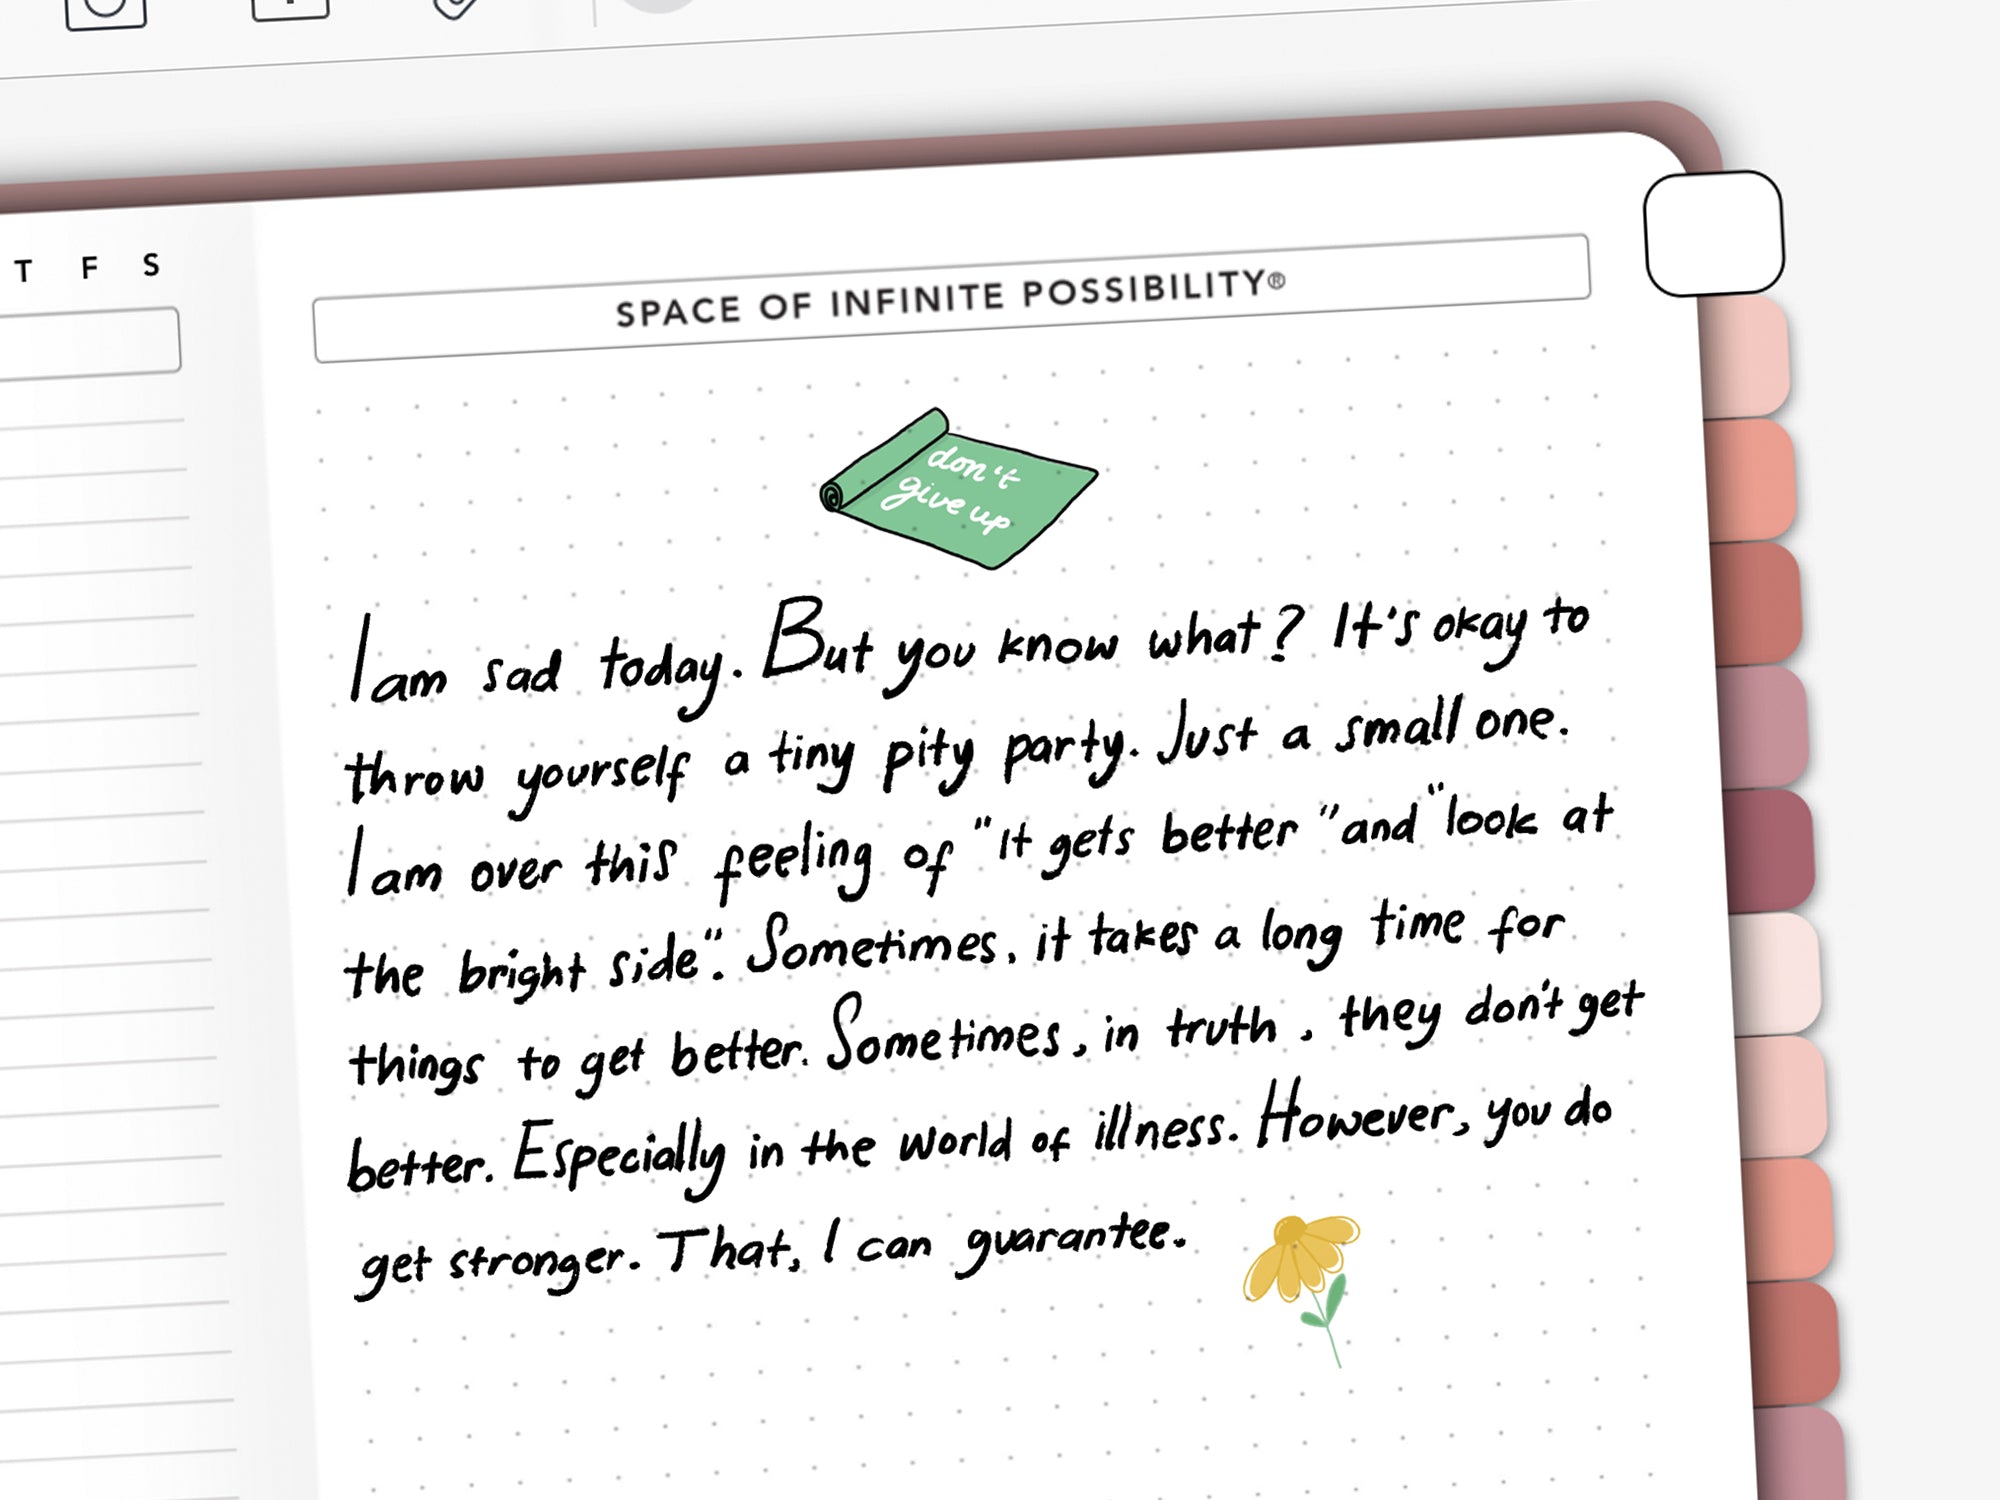 T F S
SPACE OF INFINITE POSSIBILITY®
don't
give up
I am sad today. But you know what? It's okay to
throw yourself a tiny pity party. Just a small one.
I am over this feeling of "It gets better" and "look at
the bright side". Sometimes, it takes a long time for
things to get better. Sometimes, in truth, they don't get
better. Especially in the world of illness. However, you do
get stronger. That, I can guarantee.